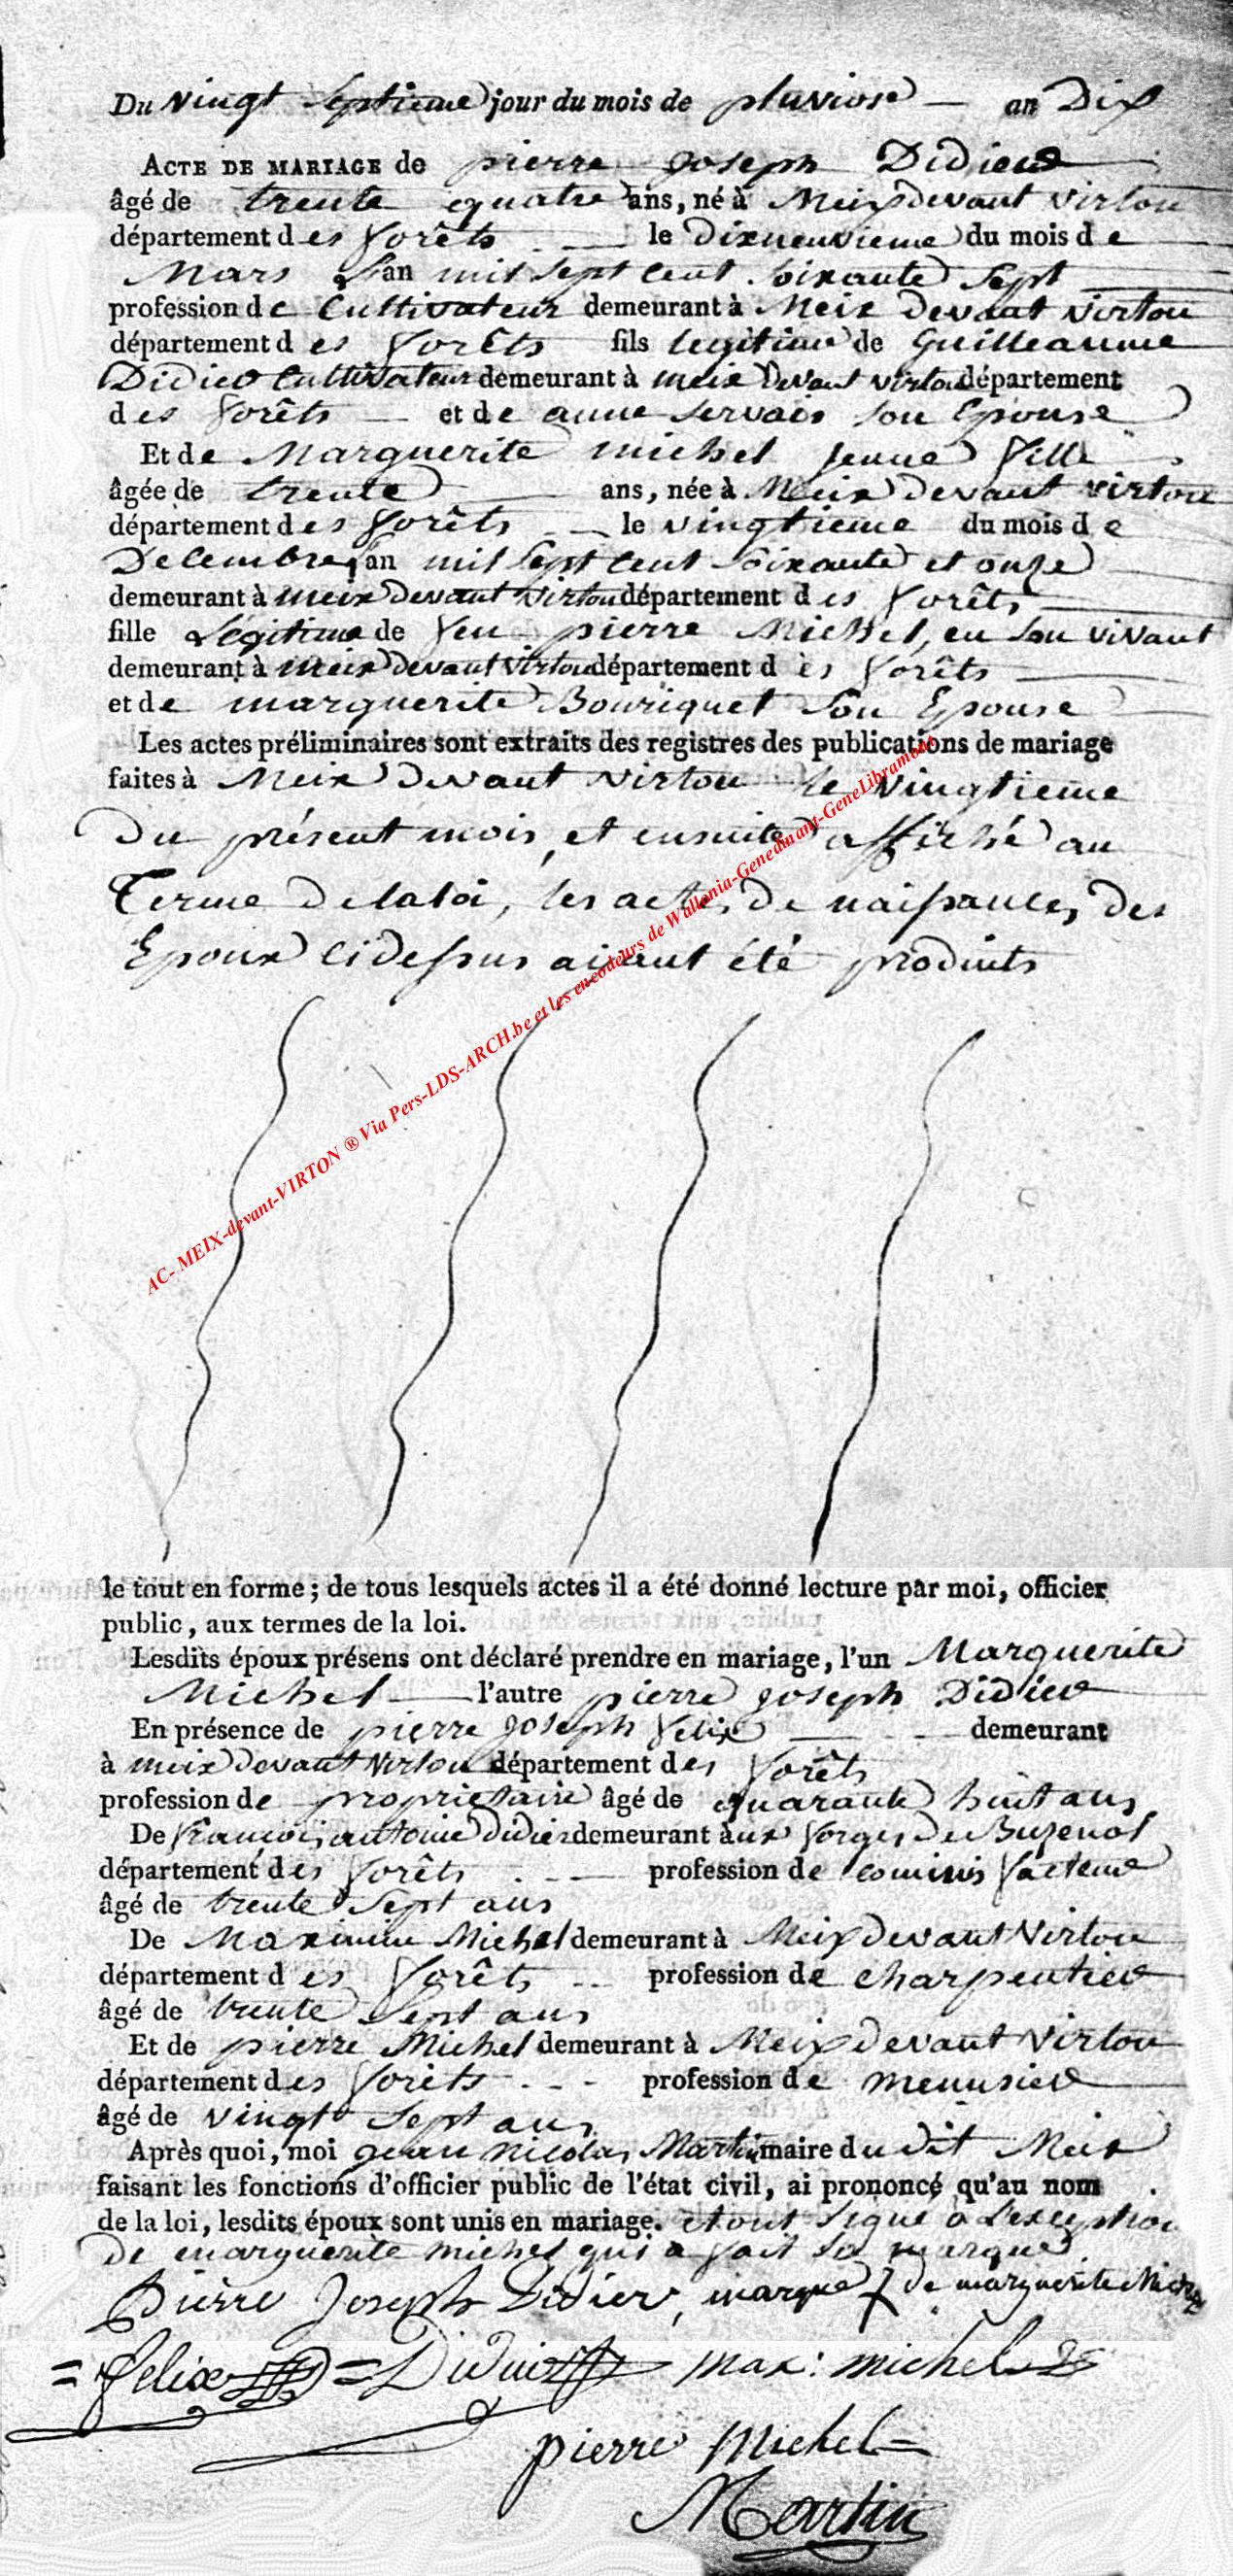 Du vingt septieme jour du mois de pluviose an Dix
ACTE DE MARIAGE de pierre joseph Didier
âgé de trente quatre ans, né à Meix devant virton
département des forêts le dixneuvieme du mois de
Mars l'an mil sept cent soixante sept
profession de Cultivateur demeurant à Meix devant virton
département des forêts fils legitime de Guilleaume
Didier Cultivateur demeurant à meix devant virton département
des forêts et de anne servais son Epouse
Et de Marguerite michel jeune fille
âgée de trente ans, née à Meix devant virton
département des forêts le vingtieme du mois de
Decembre l'an mil sept cent soixante et onze
demeurant à meix devant virton département des forêts
fille Légitime de feu pierre Michel, en son vivant
demeurant à meix devant virton département des forêts
et de marguerite Bouriquet son Epouse
Les actes préliminaires sont extraits des registres des publications de mariage
faites à Meix devant virton le vingtieme
du présent mois, et ensuite affiché au
Terme de la loi, les actes de naissances des
Epoux ci dessus aiant été produits
AC- MEIX-devant-VIRTON ® Via Pers-LDS-ARCH.be et les encodeurs de Wallonia-Genedinant-GeneLibramont
le tout en forme ; de tous lesquels actes il a été donné lecture par moi, officier
public, aux termes de la loi.
Lesdits époux présens ont déclaré prendre en mariage, l'un Marguerite
Michel l'autre pierre joseph Didier
En présence de pierre joseph felix demeurant
à meix devant virton département des forêts
profession de proprietaire âgé de quarante huit ans
De françois antoine didier demeurant aux forges de Buzenol
département des forêts profession de commis facteur
âgé de trente sept ans
De Maximin Michel demeurant à Meix devant Virton
département des forêts profession de charpentier
âgé de trente sept ans
Et de pierre Michel demeurant à Meix devant virton
département des forêts profession de menusier
âgé de vingt sept ans
Après quoi, moi jean nicolas Martin maire du dit Meix
faisant les fonctions d'officier public de l'état civil, ai prononcé qu'au nom
de la loi, lesdits époux sont unis en mariage. et ont signé à L'exception
de marguerite michel qui a fait sa marque
Pierre Joseph Didier, marque de marguerite Michel
=felix= Didier max: michel
pierre Michel
Martin